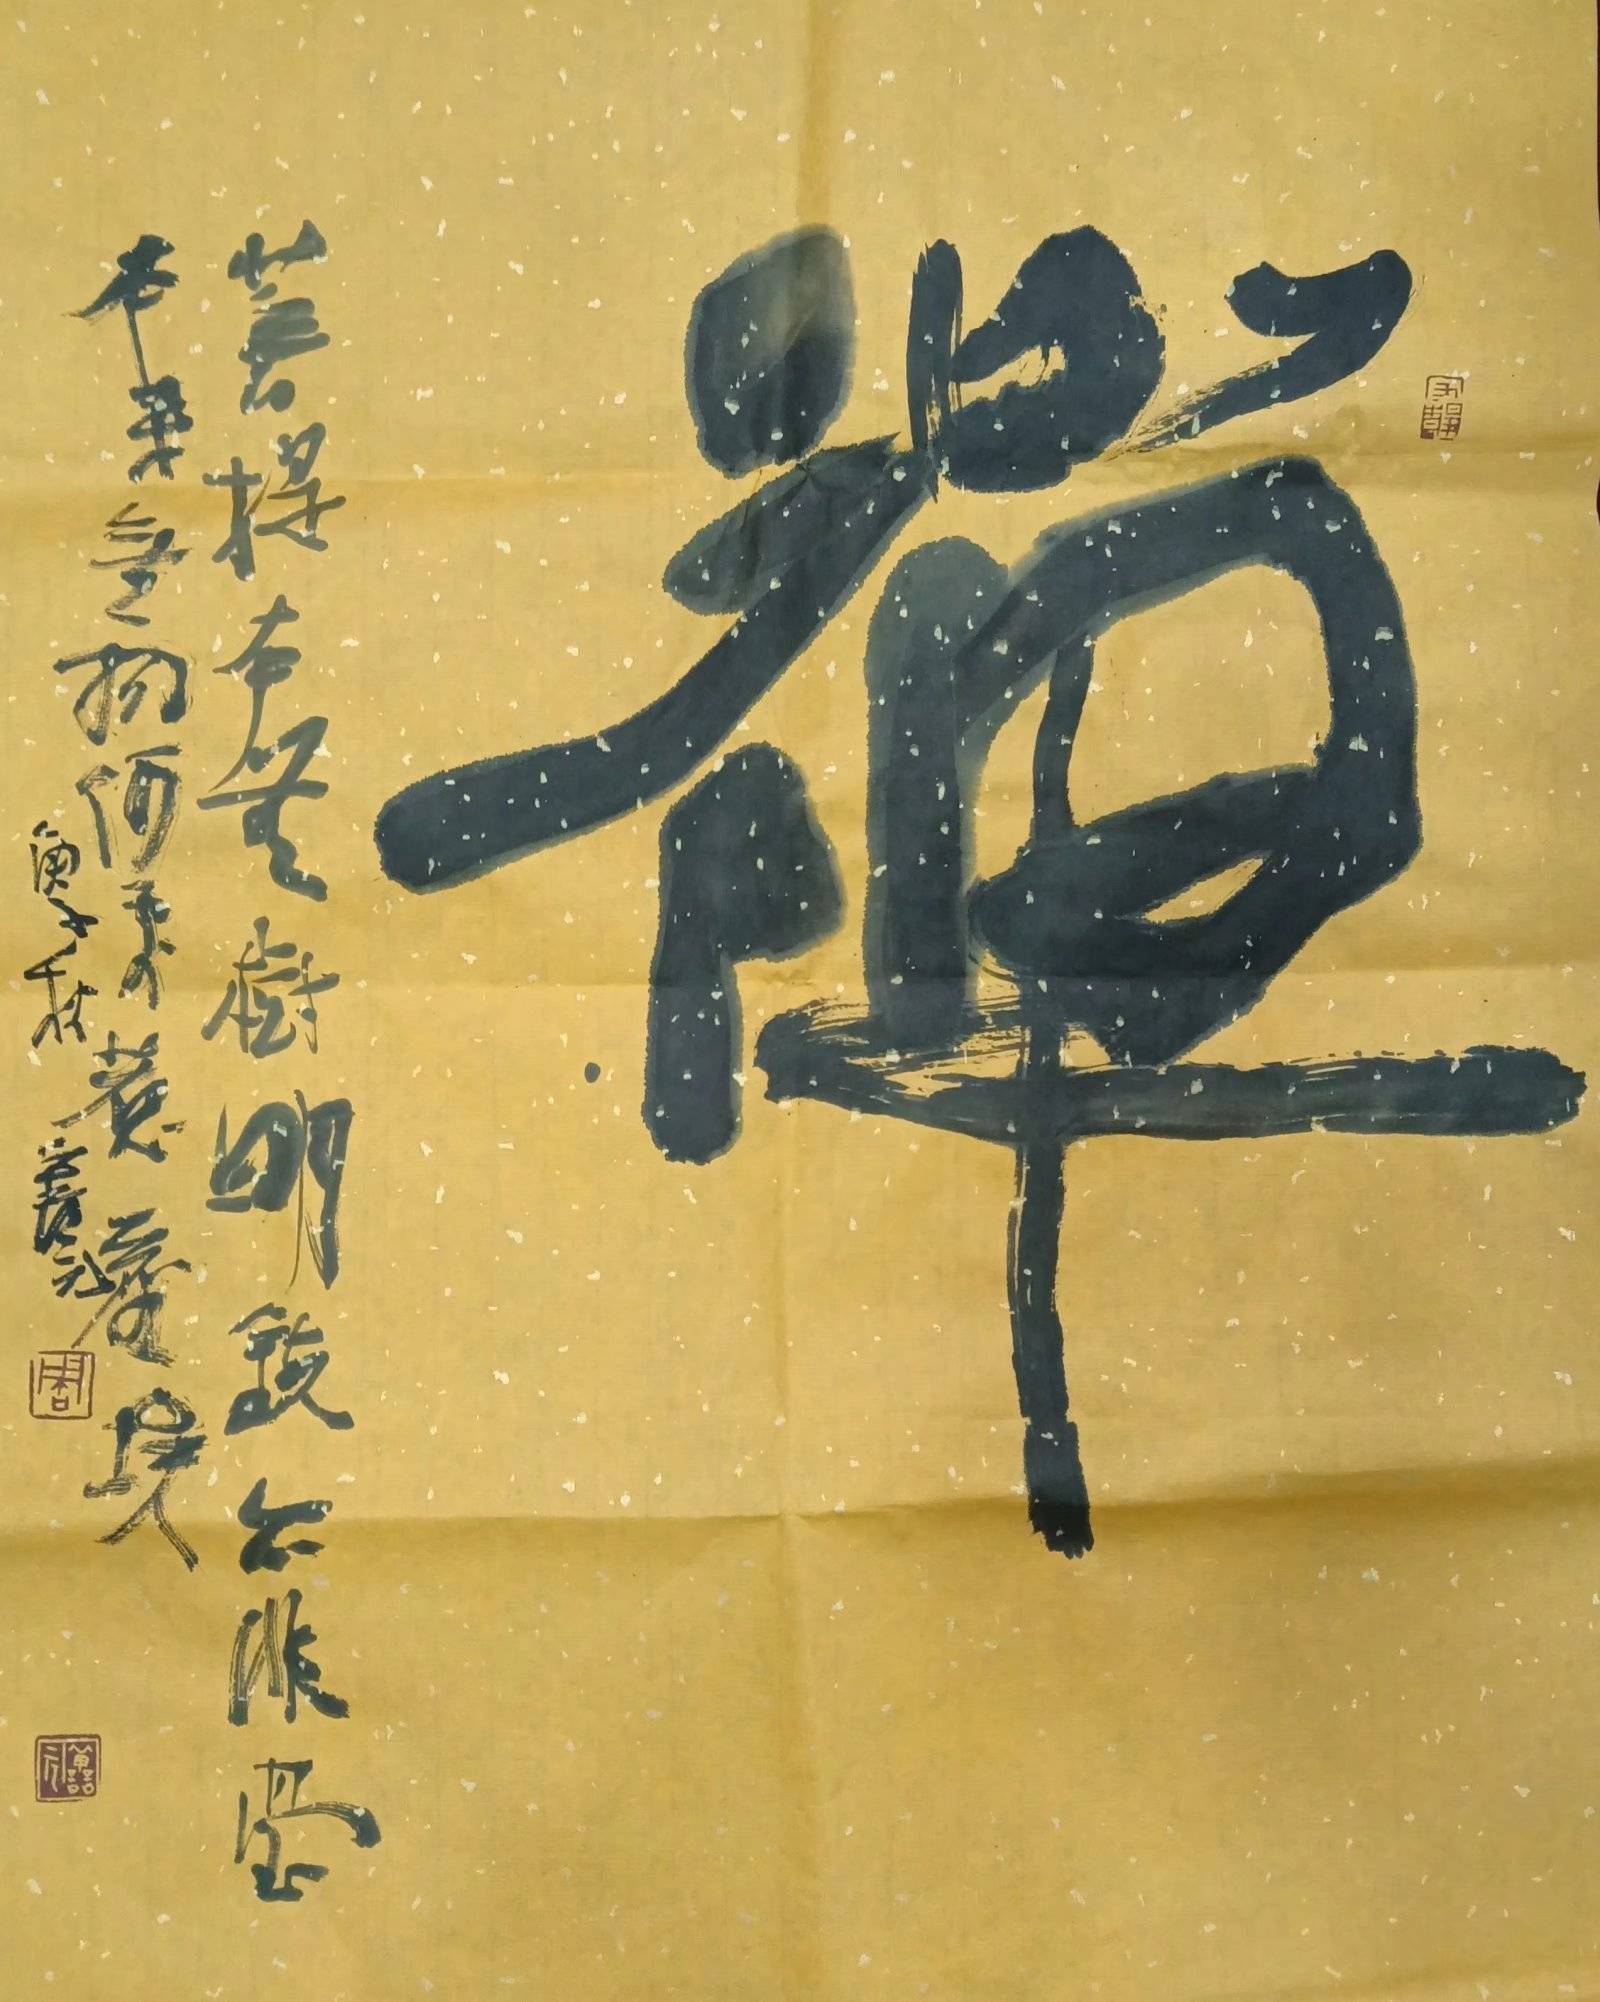 禪
菩提本無樹明鏡亦非臺
本來無一物何處惹塵埃
庚子秋
周